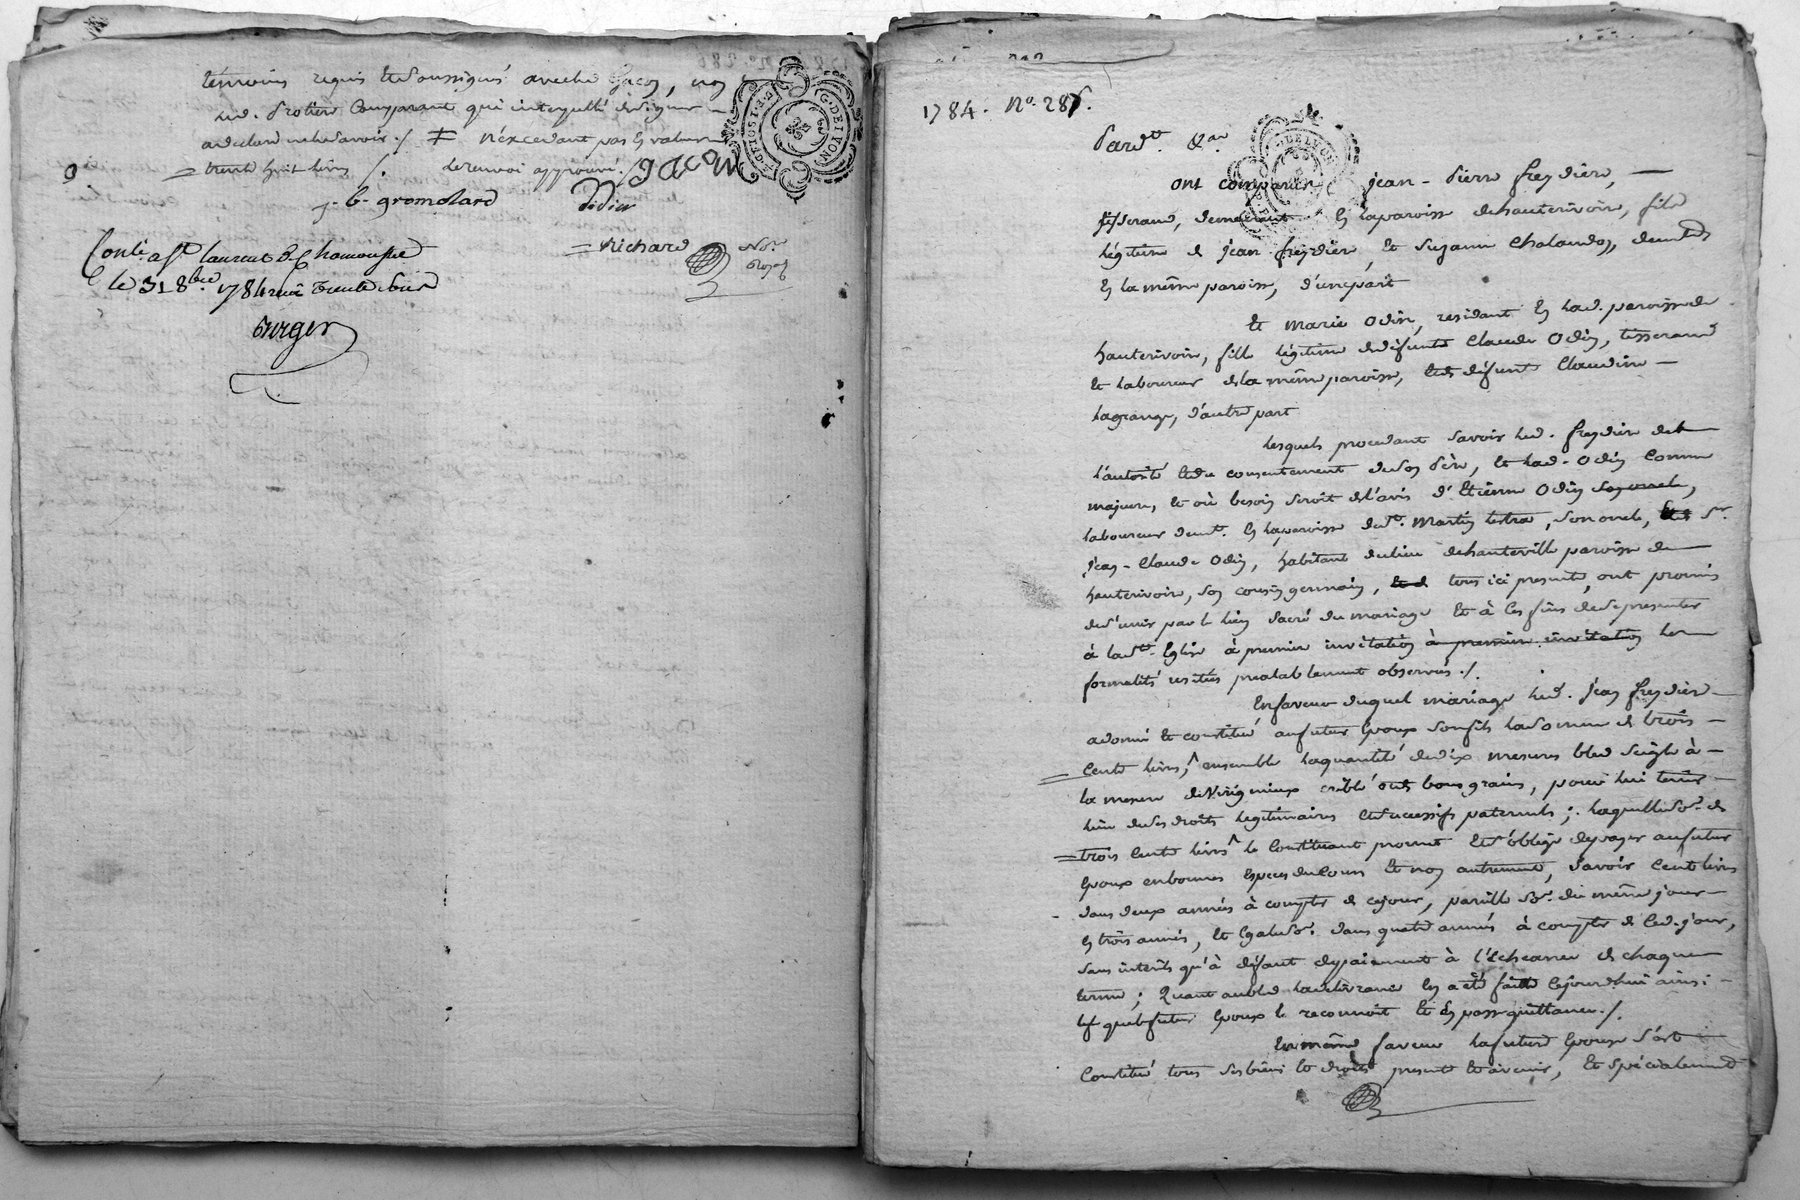 témoins requis et soussignés avec led. Gacon, non
led. Protière Comparant qui interpellé de signer
a declaré ne le savoir ./. ‡ n'excedant pas la valeur
= trente huit livres ./. le renvoi approuvé ./. gacon
j. b. gromolard Didier
= Richard Nore Royal
Contlé a St laurent De Chamousset
le 31 8bre 1784 reçu trente sols
Burger
G. DE LYON
1784. No. 287.
Pardt. &a.
ont comparu jean-Pierre freydiere,
tisserand, demeurant en la paroisse de hauterivoire, fils
légitime de jean freydiere, et Suzanne Chalandon, demeurants
en la même paroisse, d'une part
Et marie Odin, residant en lad. paroisse de
hauterivoire, fille légitime de défunts Claude Odin, tisserand
et laboureur de la même paroisse, et de défunte Claudine
lagrange, d'autre part
lesquels procedant savoir led. freydiere de
l'autorité et du consentement de son Père, et lad. Odin comme
majeure, et où besoin seroit de l'avis d'Etienne Odin son oncle,
laboureur demt. en la paroisse de St. Martin lestra, son oncle, Sr.
jean-Claude Odin, habitant du lieu de hauteville paroisse de
hauterivoire, son cousin germain, tous ici presents, ont promis
de s'unir par le lien sacré du mariage et à ces fins de se presenter
à la Ste. Eglise à premiere invitation à premiere invitation les
formalités usitées prealablement observées ./.
En faveur duquel mariage led. jean freydiere
a donné et constitué au futur Epoux son fils la somme de trois
= Cents livres, ^ ensemble la quantité de dix mesures bled seigle à
la mesure de Virigneux criblé et de bons grains, pour lui tenir
lieu de ses droits légitimaires et successifs paternels; laquelle so. de
= trois Cents livres ^ le Constituant promet et s'oblige de payer au futur
Epoux en bonnes Especes du Cours et non autrement, Savoir Cent livres
dans deux années à compter de ce jour, pareille so. du même jour
en trois années, et Egale so. dans quatre années à compter de ced. jour,
sans interêts qu'à défaut de paiement à l'Echeance de chaque
terme; Quant au bled la delivrance en a été faitte ce jourdhui ainsi
que le futur Epoux le reconnoit et en passe quittance ./.
En même faveur la future Epouse s'est
Constitué tous ses biens et droits present et à venir, et spécialement